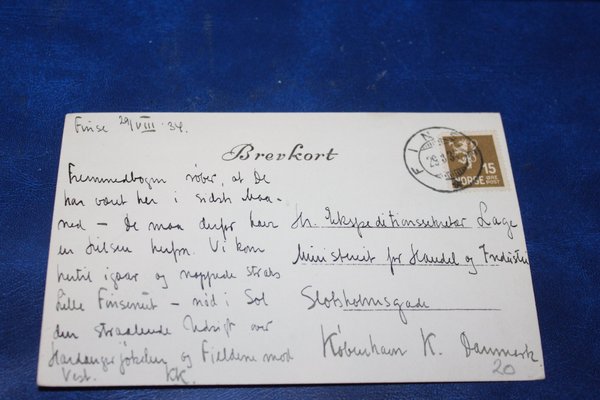 Finse 29/VIII 34.
Brevkort
Fremmedbogen røber, at De
har været her i sidste Maa-
ned – De maa derfor have
en Hilsen herfra. Vi kom
hertil igaar og nappede straks
Lille Finsenut – nød i Sol
den straalende Udsigt over
Hardangerjøkelen og Fjeldene mod
Vest. KK.
FIN
29.8.3
15
NORGE ØRE POST
Hr. Ekspeditionssekretær Lage
Ministeriet for Handel og Industri
Slotsholmsgade
København K. Danmark
20